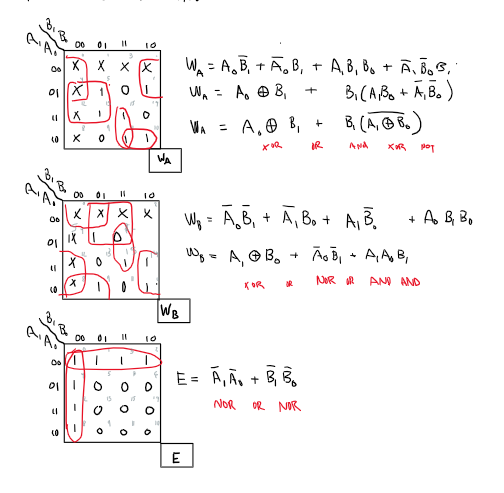 B₁B₀
A₁A₀ 00 01 11 10
00 X X X X
01 X 1 0 1
11 X 1 1 0
10 X 0 1 1
W_A
W_A = A₀B̅₁ + A̅₀B₁ + A₁B₁B₀ + A̅₁B̅₀B₁
W_A = A₀ ⊕ B₁ + B₁(A₁B₀ + A̅₁B̅₀)
W_A = A₀ ⊕ B₁ + B₁(A̅₁̅ ̅⊕̅ ̅B̅₀̅)
XOR OR AND XOR NOT
B₁B₀
A₁A₀ 00 01 11 10
00 X X X X
01 X 1 0 1
11 X 0 1 1
10 X 1 0 1
W_B
W_B = A̅₀B̅₁ + A̅₁B₀ + A₁B̅₀ + A₀B₁B₀
W_B = A₁ ⊕ B₀ + A̅₀B̅₁ + A₁A₀B₁
XOR OR NOR OR AND AND
B₁B₀
A₁A₀ 00 01 11 10
00 1 1 1 1
01 1 0 0 0
11 1 0 0 0
10 1 0 0 0
E
E = A̅₁A̅₀ + B̅₁B̅₀
NOR OR NOR